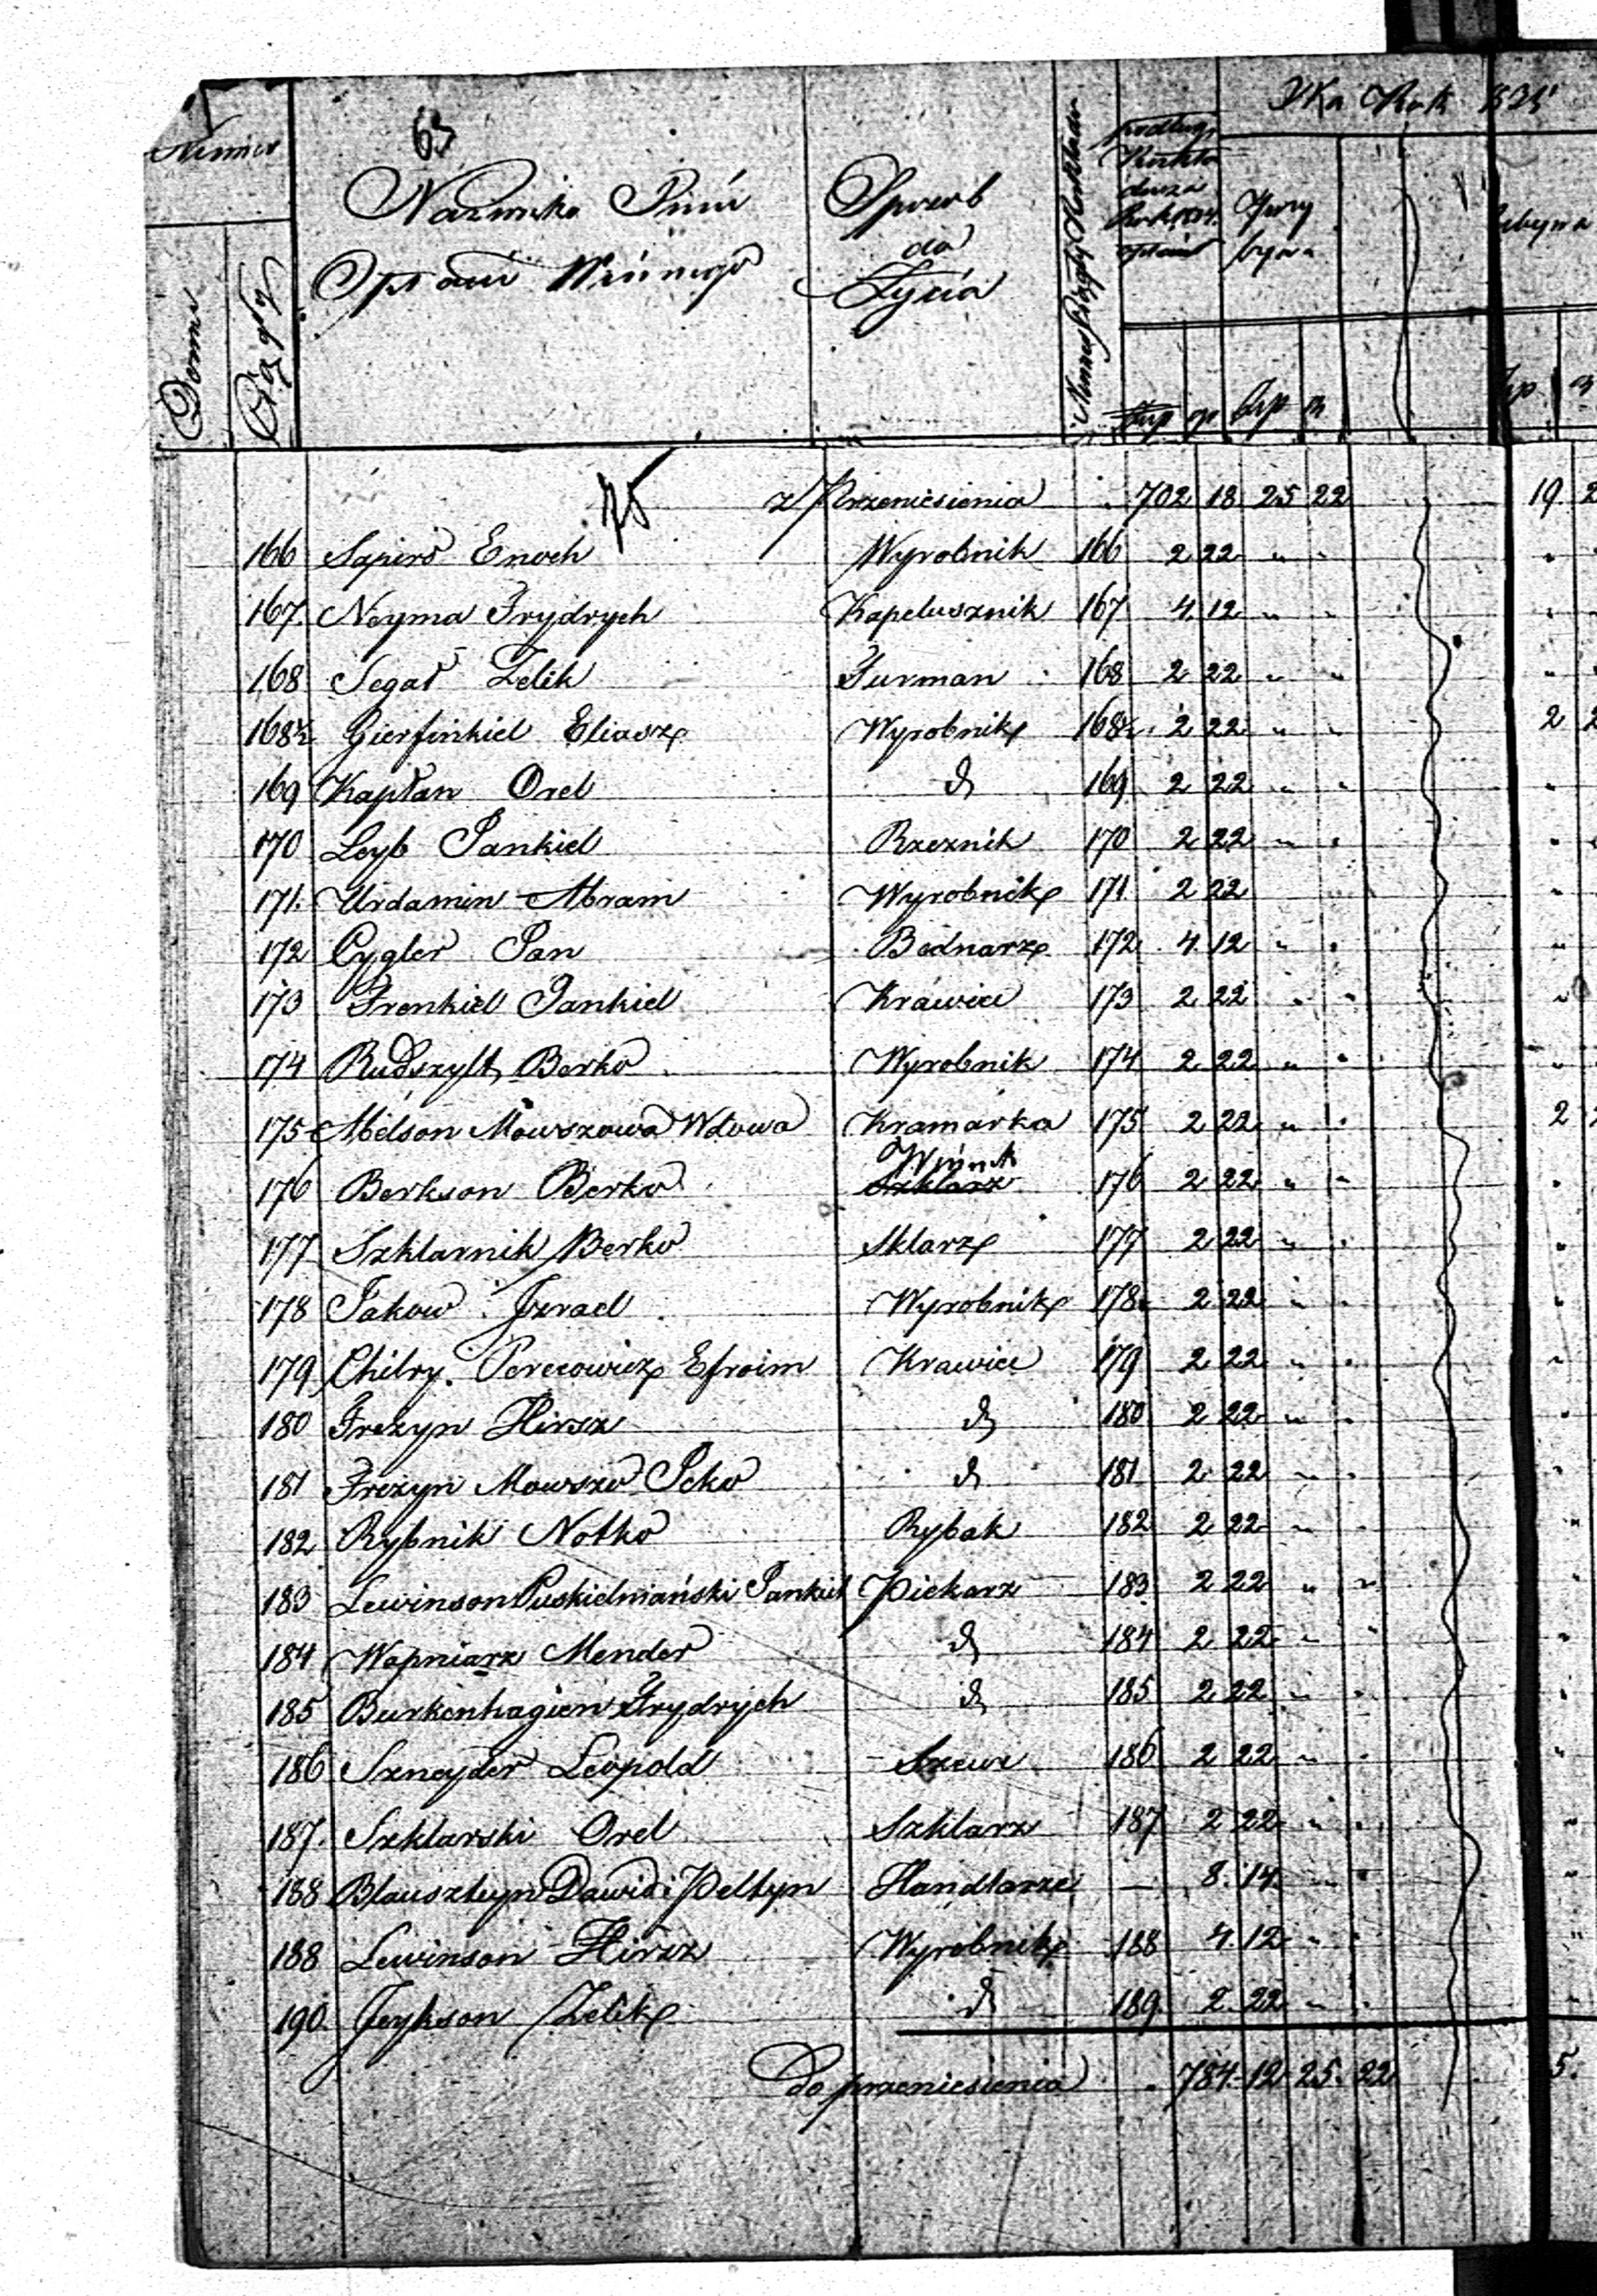 63
Numer
Domu
Nazwisko Imie
Sposob
do
Życia
Na Rok
podług
Zlp gr Zlp gr
75
z Przeniesienia 702 18 25 22 19
166 Sapiro Enoch Wyrobnik 166 2 22 " "
167. Neyma Frydrych Kapelusznik 167 4. 12 " "
168 Segał Zelik Furman 168 2 22 " "
168½ Gierfinkiel Eliasz Wyrobnik 168½ 2 22 " " 2
169 Kapłan Orel d 169 2 22 " "
170 Leyb Jankiel Rzeznik 170 2 22 " "
171. Urdamin Abram Wyrobnik 171 2 22
172 Cygler Jan Bednarz 172 4 12 " "
173 Frenkiel Jankiel Krawiec 173 2 22 " "
174 Rudszylt Berko Wyrobnik 174 2 22 " "
175 Melson Mowszowa Wdowa Kramarka 175 2 22 " " 2
176 Berkson Berko Szklarz 176 2 22 " "
177 Szklarnik Berko Sklarz 177 2 22 " "
178 Jakow Izrael Wyrobnik 178 2 22 " "
179 Chilry. Perecowicz Efroim Krawiec 179 2 22 " "
180 Frezyn Hirsz d 180 2 22 " "
181 Frezyn Mowszo Icko d 181 2 22 " "
182 Rybnik Notko Rybak 182 2 22 "
183 Lewinson Puskielniański Jankiel Piekarz 183 2 22 " "
184 Wapniarz Mender d 184 2 22 " "
185 Burkenhagien Frydrych d 185 2 22 " "
186 Szneyder Leopold Szewc 186 2 22 " "
187. Szklarski Orel Szklarz 187 2 22 " "
188 Blauszteyn Dawid i Peltyn Handlarze — 8. 14. " "
188 Lewinson Hirsz Wyrobnik 188 4. 12 " "
190. Jeykson Zelik d 189. 2. 22 " "
Do przeniesienia 784. 12 25. 22 5.